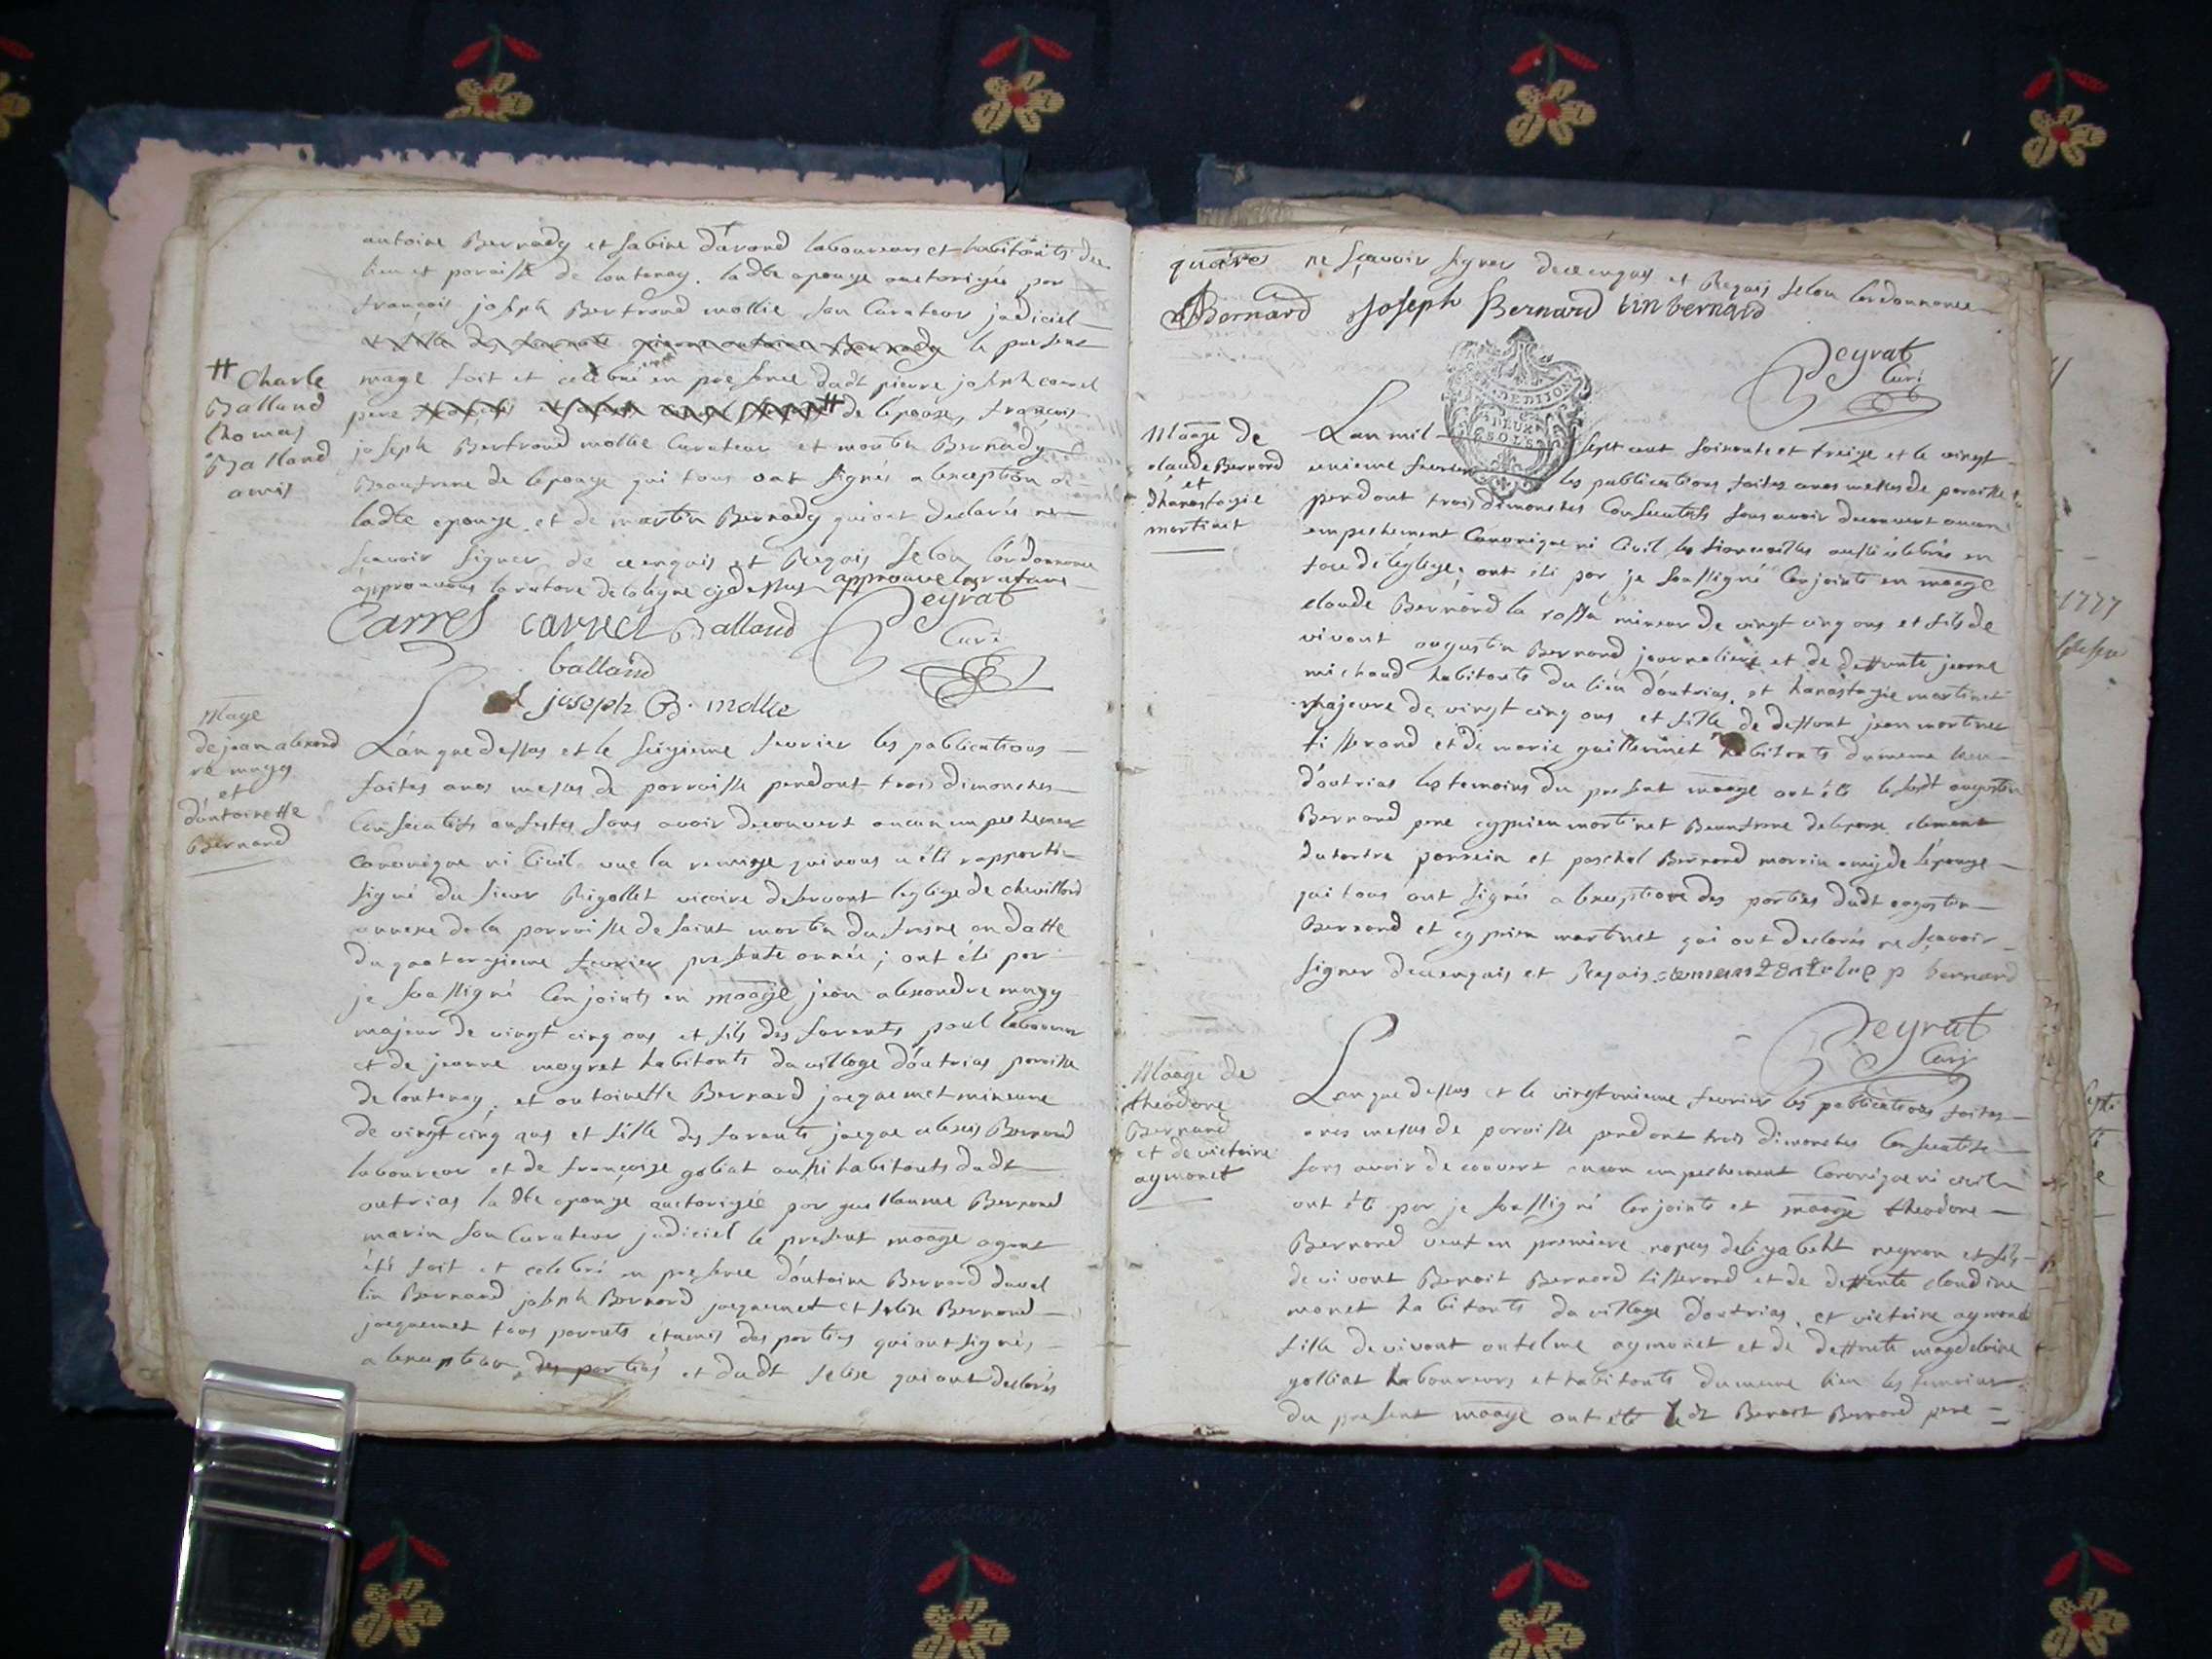 antoine Bernady et sabine davand laboureurs et habitants des
lieu et paroisse de lantenay. ladte epouze auctorizée par
françois joseph Bertrand mollie son Curateur judiciel
le present
mage fait et celebré en presence dudt pierre joseph carrel
pere # de lépouse, françois
joseph Bertrand mollie Curateur et martin Bernady
Beaufrere de lepouze qui tous ont signés a lexception de
ladte epouze et de martin Bernady qui ont declarés ne
sçavoir signer de ce enquis et Requis selon lordonnance
approuvons la rature de la ligne cy dessus approuve la rature
# Charle
Balland
thomas
Balland
amis
Carrel carrel Balland Peyrat
Curé
balland
joseph B. mollie
Mage
de jean alexand
re mugy
et
dantoinette
Bernard
Lan que dessus et le seizieme fevrier les publications
faites a nos messes de parroisse pendant trois dimanches
Consecutifs ou festes sans avoir decouvert aucun empechement
Canonique ni Civil vue la remise qui nous a été rapportée
signé du sieur Rigollet vicaire desservant leglize de chevillard
annexe de la parroisse de saint martin du fresne en datte
du quatorzieme fevrier presente année; ont été par
je soussigné Conjoints en maage jean alexandre mugy
majeur de vingt cinq ans et fils des savants paul laboureur
et de jeanne mayret habitants du village doutrias paroisse
de lantenay; et antoinette Bernard jacquemet mineure
de vingt cinq ans et fille des savants jacque alexis Bernard
laboureur et de françoize goliat aussi habitants dudt
outrias la dte epouze auctorizée par guillaume Bernard
marin son Curateur judiciel le present maage ayant
été fait et celebré en presence dantoine Bernard duval
lin Bernard joseph Bernard jacquemet et felix Bernard
jacquemet tous parents et amis des parties qui ont signés,
a lexception des parties et dudt felix qui ont declarés
quaires ne sçavoir signer de ce enquis et Requis selon lordonnance
Bernard joseph Bernard lin bernard
Peyrat
Curé
DEUX
SOLS
Maage de
claude Bernard
et
dhanastazie
martinet
Lan mil sept cent soixante et treize et le vingt
unieme fevrier les publications faites a nos messes de paroisse
pendant trois dimanches Consecutifs sans avoir decouvert aucun
empechement Canonique ni Civil les fiancailles aussi celebrés en
face de léglize; ont été par je soussigné Conjoints en maage
claude Bernard la rossa mineur de vingt cinq ans et fils de
vivant augustin Bernard journalier et de deffunte jeanne
michaud habitants du lieu doutrias, et hanastazie martinet
majeure de vingt cinq ans et fille de deffunt jean martinet
tisserand et de marie guillerminet habitants du meme lieu
doutrias les temoins du present maage ont été le susdt augustin
Bernard pere cyprien martinet Beaufrere de lepouse clement
dutartre parrein et paschal Bernard marrin amis de lépouze
qui tous ont signés a lexception des parties dudt augustin
Bernard et cyprien martinet qui ont declarés ne sçavoir
signer de ce enquis et Requis. p bernard
Peyrat
Curé
Maage de
theodore
Bernard
et de victoire
aymonet
Lan que dessus et le vingt unieme fevrier les publications faites
a nos messes de paroisse pendant trois dimanches Consecutifs
sans avoir decouvert aucun empechement Canonique ni civil
ont été par je soussigné Conjoints et maage theodore
Bernard veuf en premiere nopces delizabeht neyron et fils
de vivant Benoit Bernard tisserand et de deffunte claudine
monet habitants du village doutrias, et victoire aymonet
fille de vivant antelme aymonet et de deffunte magdeleine
golliat laboureurs et habitants du meme lieu les temoins
du present maage ont été ledt Benoit Bernard pere
1777